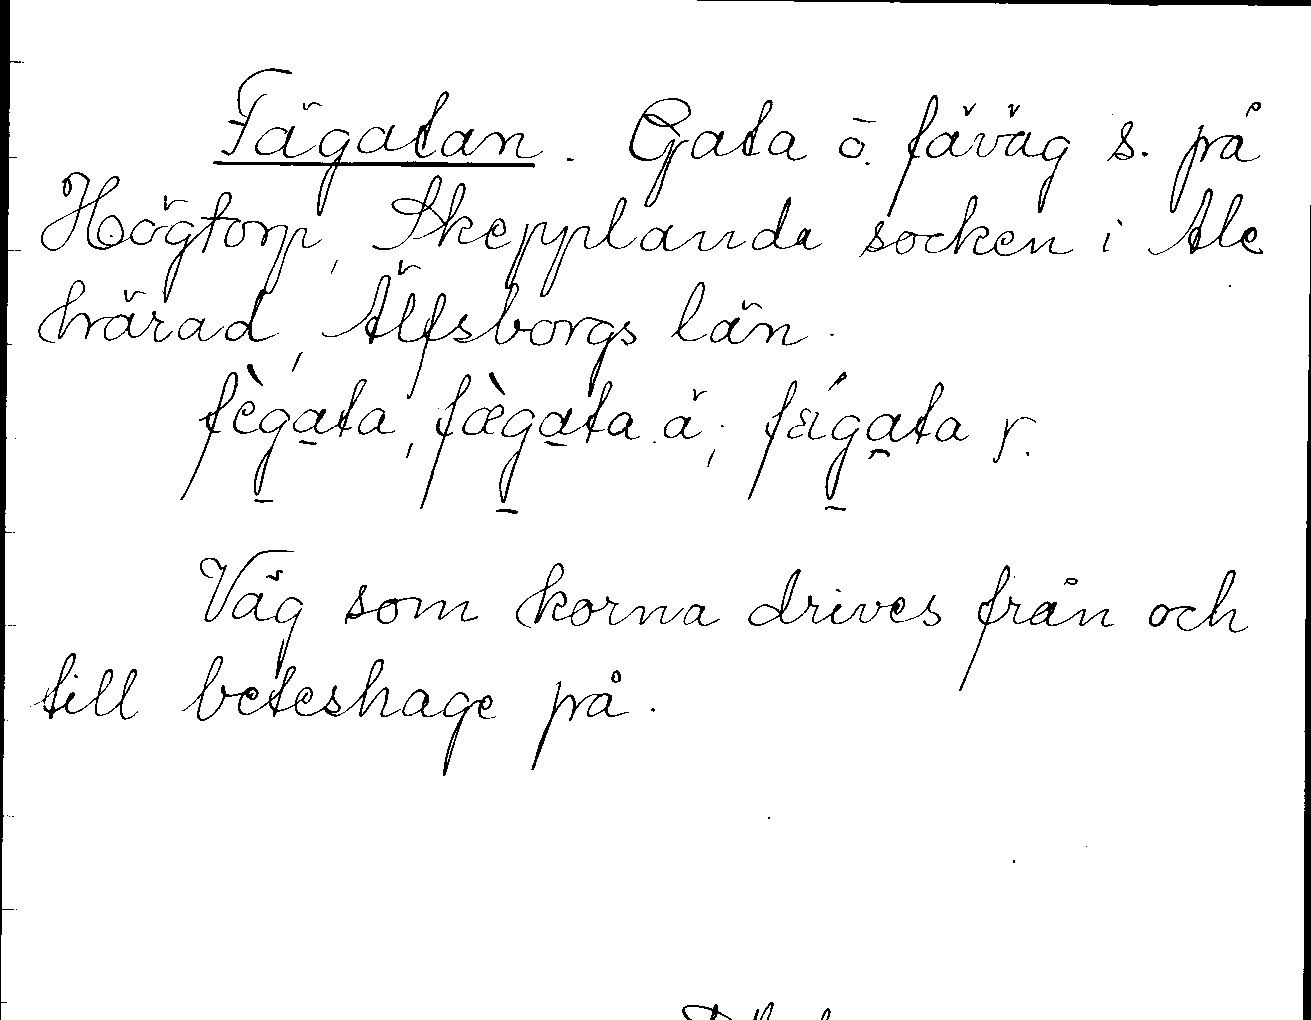 Fägatan. Gata o. fäväg s. på
Högtorp, Skepplanda socken i Ale
härad, Älfsborgs län.
fègata, fægata ä; fǽgata r.
Väg som korna drives från och
till beteshage på.